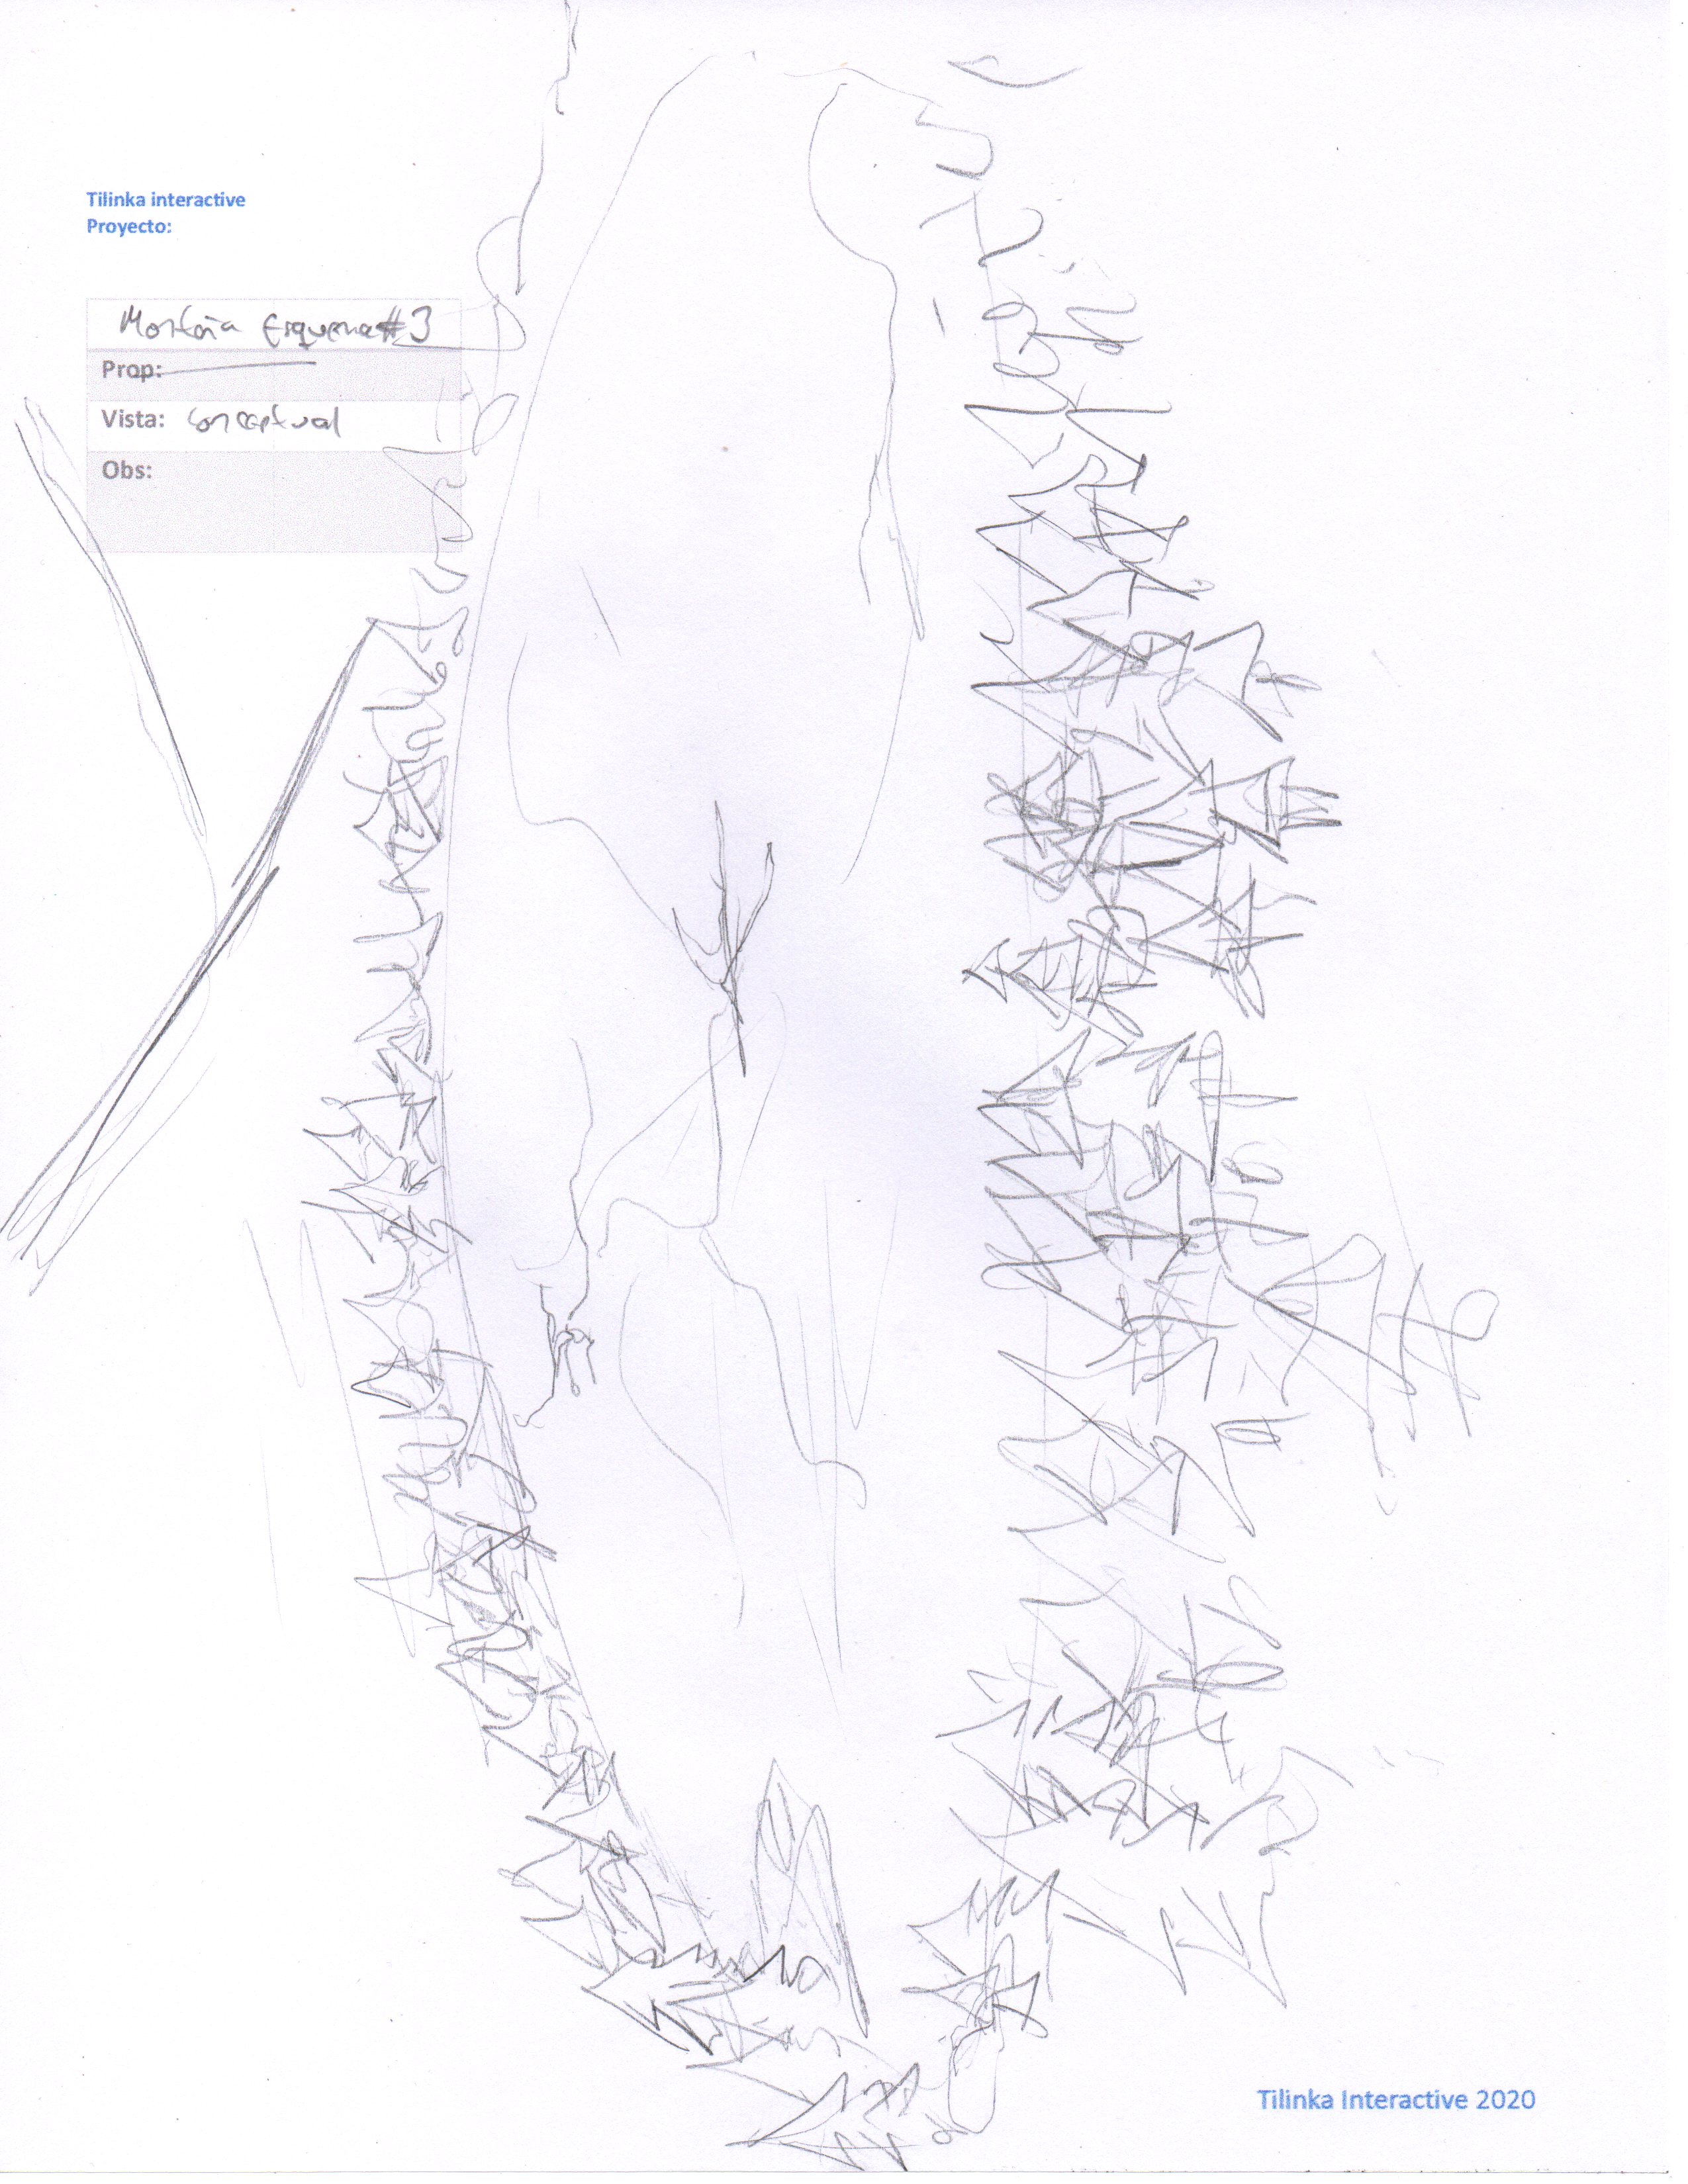 Tilinka interactive
Proyecto:
Montaña Esquema #3
Prop:
Vista: Conceptual
Obs:
Tilinka Interactive 2020